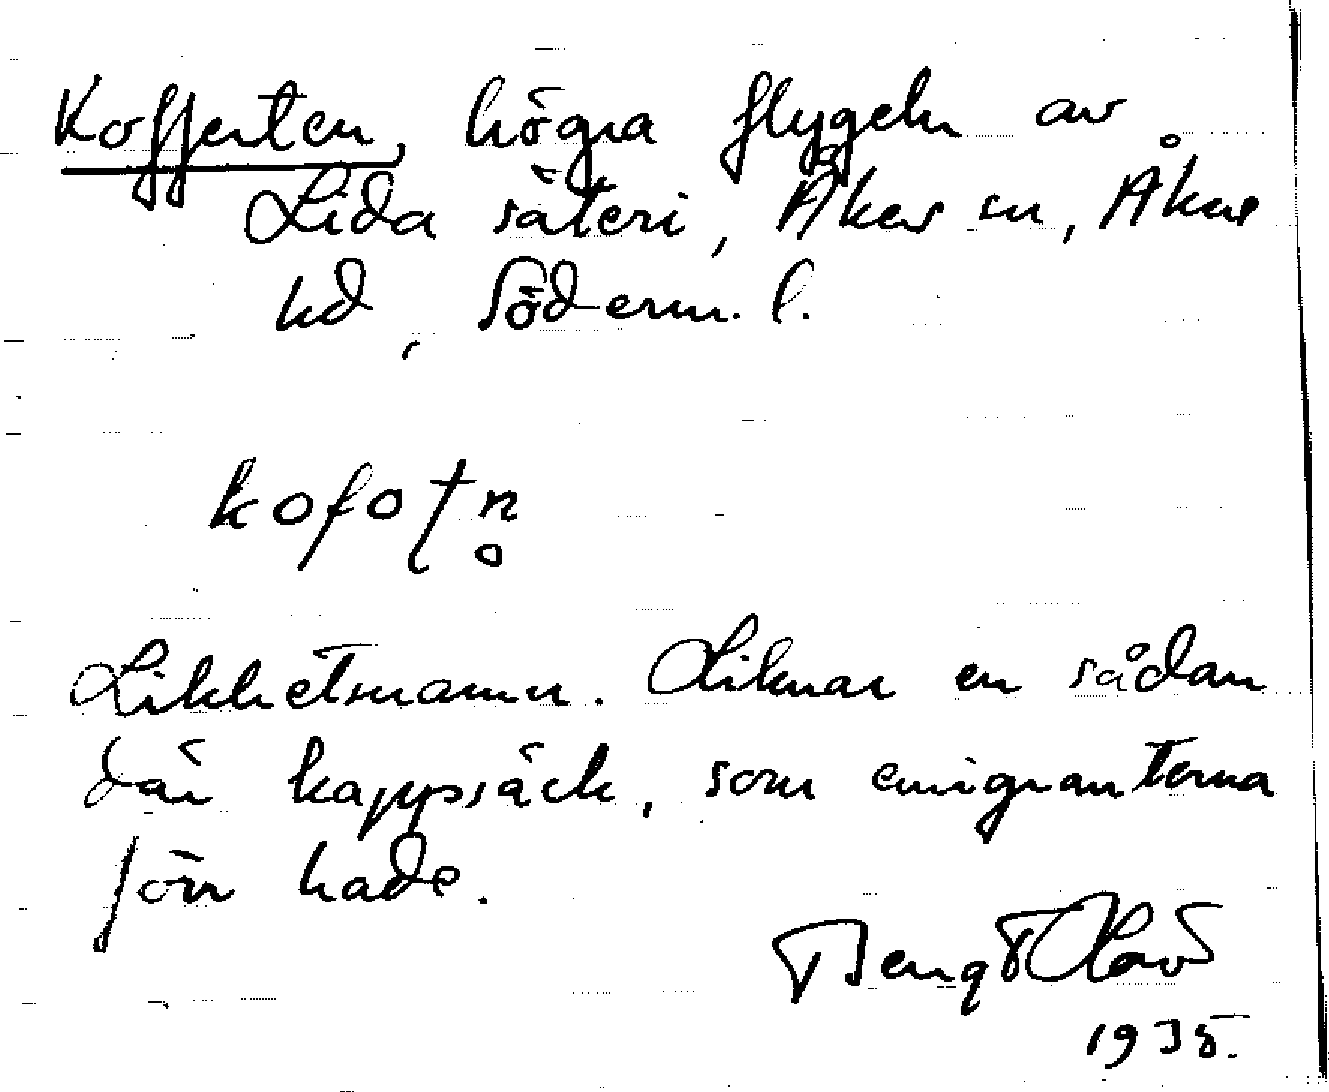 Kofferten, högra flygeln av
Lida säteri, Åkers sn, Åkers
hd, Söderm. l.
kofotn̥
Likhetsnamn. Liknar en sådan
där kappsäck, som emigranterna
förr hade.
Bengt
1935.